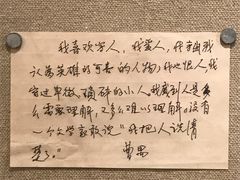 我喜欢写人，我爱人，我写出我
认为英雄的可喜的人物；我也恨人，我
写过卑微、琐碎的小人。我感到人是多
么需要理解，又多么难以理解。没有
一个文学家敢说“我把人说清
楚了。” 曹禺